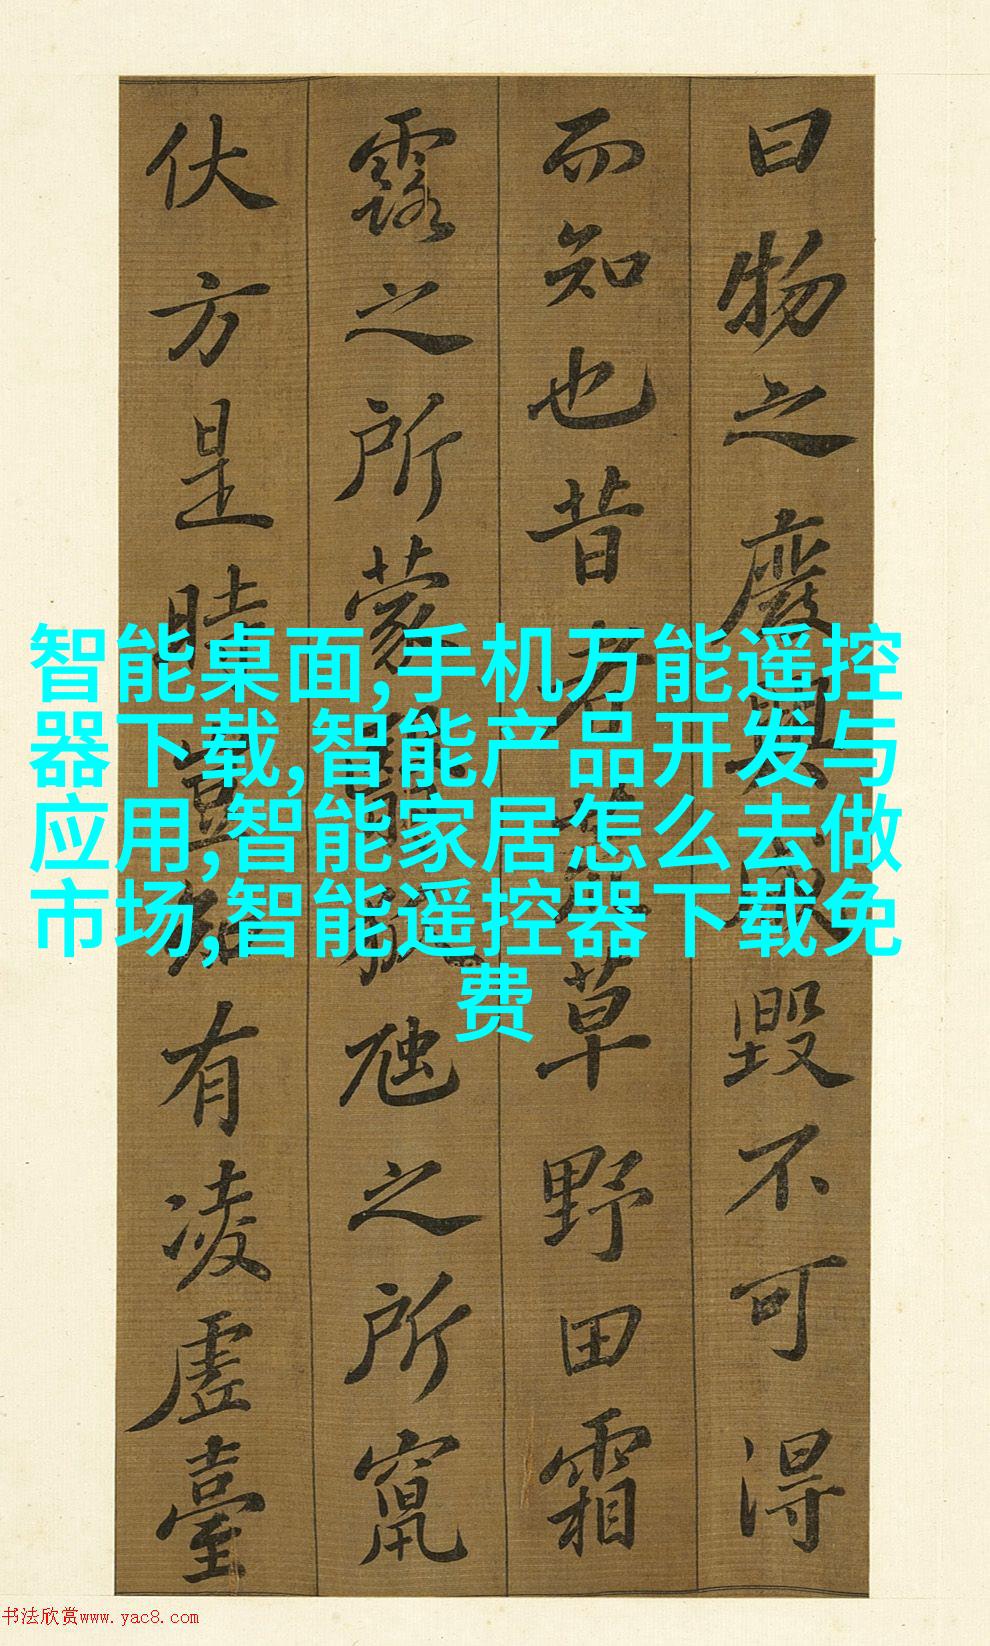 曰物之廢興成毀不可得
而知也昔者荒草野田霜
露之所蒙翳狐虺之所竄
伏方是時豈知有凌虛臺
智能桌面,手机万能遥控
器下载,智能产品开发与
应用,智能家居怎么去做
市场,智能遥控器下载免
费
书法欣赏www.yac8.com